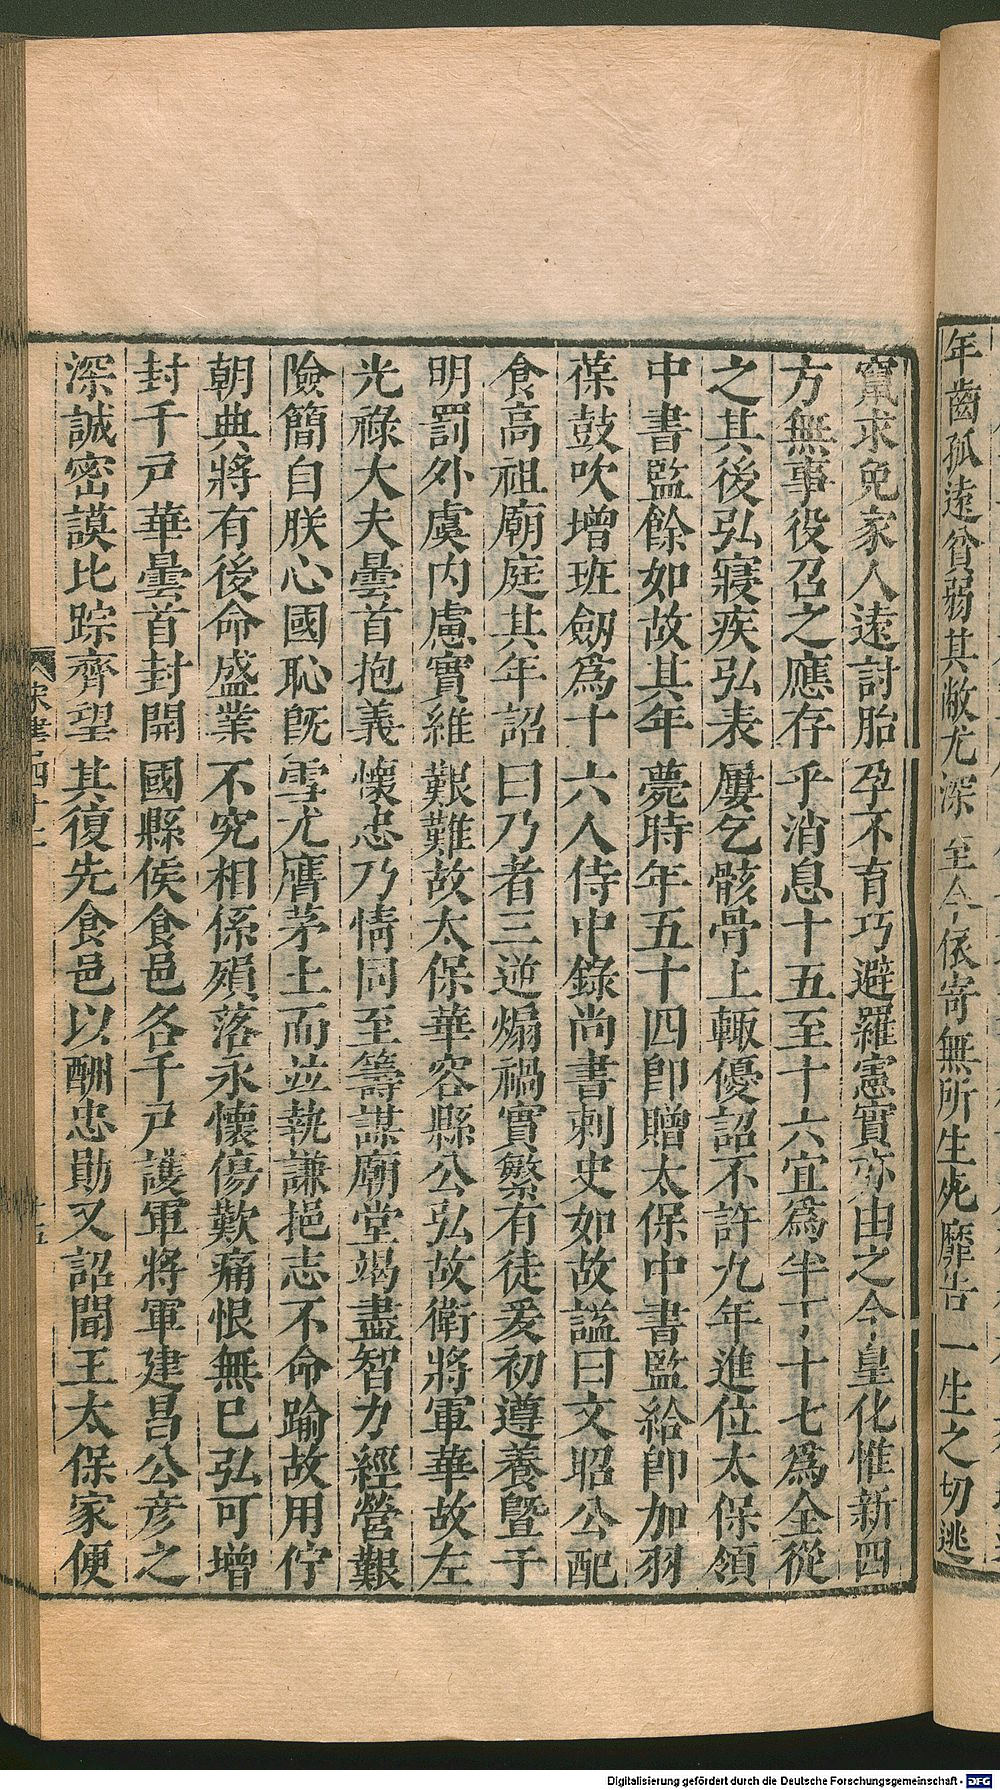 年齒孤遠貧弱其敝尤深至今依寄無所生死靡告一生之切逃
竄求免家人遠討胎孕不育巧避羅憲實亦由之今皇化惟新四
方無事役召之應存乎消息十五至十六宜爲半丁十七爲全從
之其後弘寢疾弘表屢乞骸骨上輒優詔不許九年進位太保領
中書監餘如故其年薨時年五十四卽贈太保中書監給卽加羽
葆鼓吹增班劒爲十六人侍中錄尚書刺史如故謚曰文昭公配
食高祖廟庭其年詔曰乃者三逆煽禍實繁有徒爰初遵養曁于
明罰外虞内慮實維艱難故太保華容縣公弘故衛將軍華故左
光祿大夫曇首抱義懷忠乃情同至籌謀廟堂竭盡智力經營艱
險簡自朕心國恥旣雪尤膺茅土而並執謙挹志不命踰故用佇
朝典將有後命盛業不究相係殞落永懷傷歎痛恨無巳弘可增
封千戸華曇首封開國縣侯食邑各千戸護軍將軍建昌公彦之
深誠密謨比踪齊望其復先食邑以酬忠勛又詔聞王太保家便
Digitalisierung gefördert durch die Deutsche Forschungsgemeinschaft - DFG